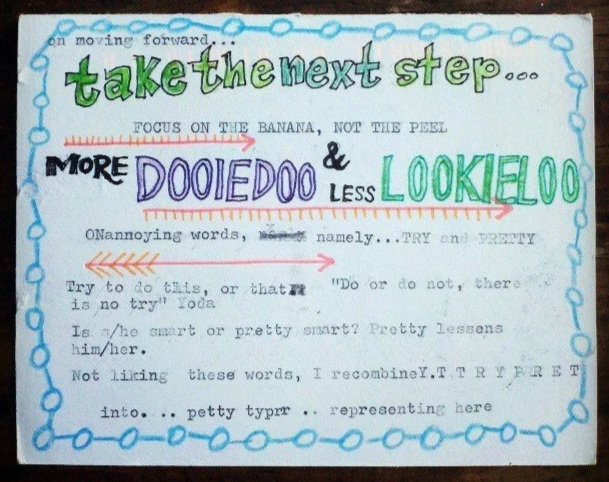 on moving forward...
take the next step...
FOCUS ON THE BANANA, NOT THE PEEL
MORE DOOIEDOO & LESS LOOKIELOO
ONannoying words, namely...TRY and PRETTY
Try to do this, or that "Do or do not, there
is no try" Yoda
Is s/he smart or pretty smart? Pretty lessens
him/her.
Not liking these words, I recombineY.T T R Y P R E T
into. .. petty typrr .. representing here